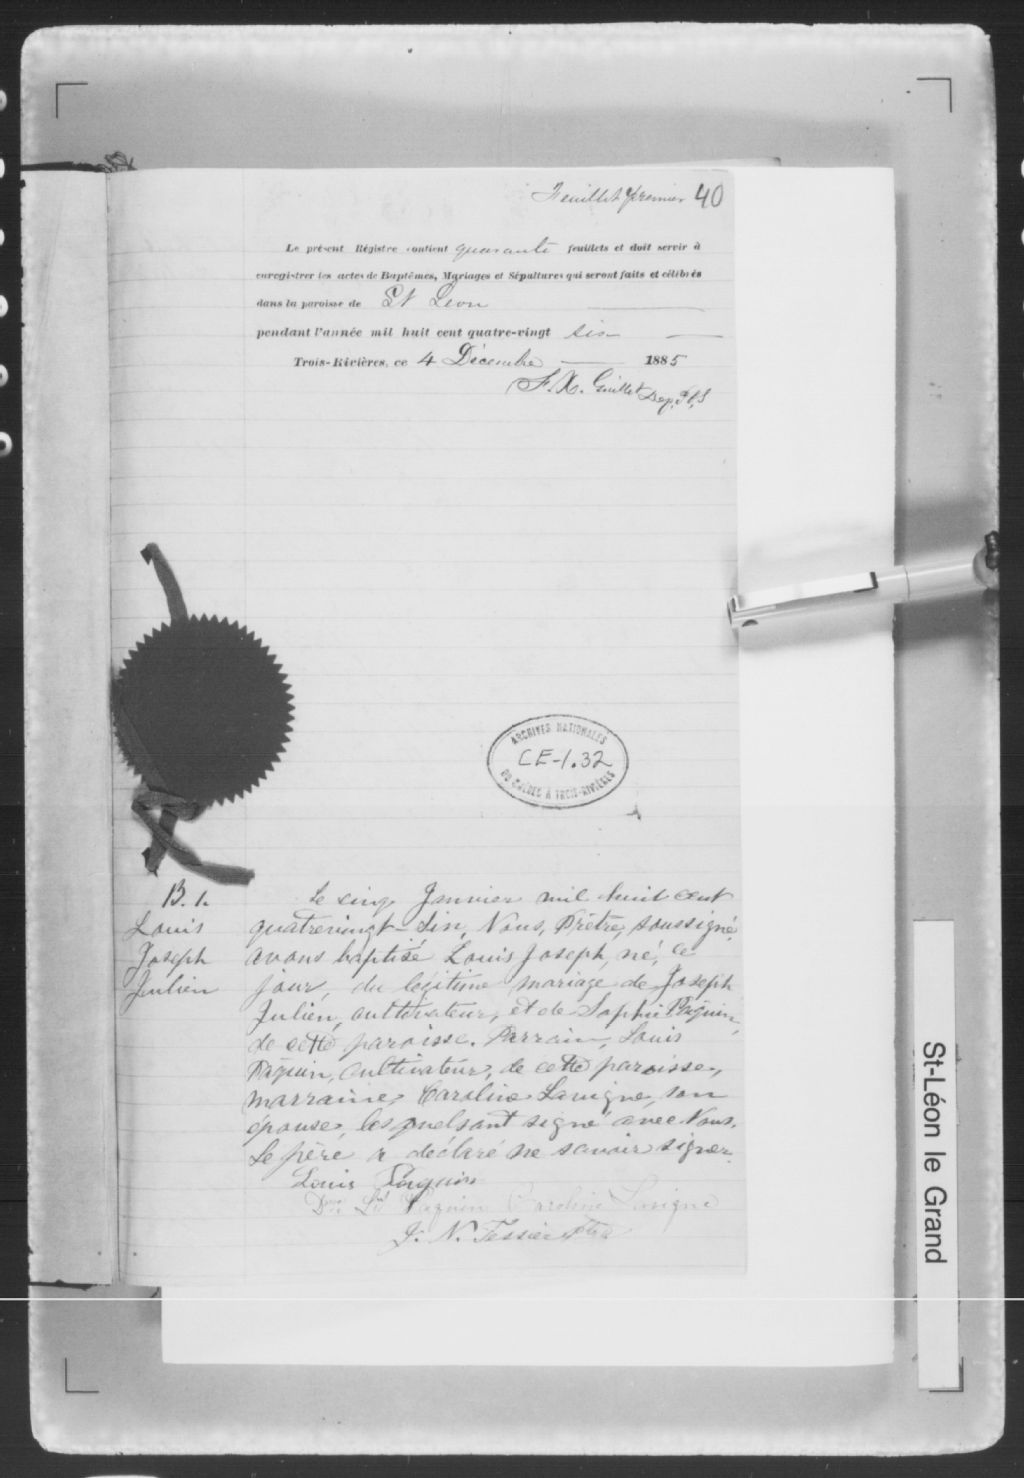 Feuillet premier 40
Le présent Régistre contient quarante feuillets et doit servir à
enregistrer les actes de Baptêmes, Mariages et Sépultures qui seront faits et célébrés
dans la paroisse de St Léon
pendant l'année mil huit cent quatre-vingt six
Trois-Rivières, ce 4 Décembre 1885
F. X. Guillet Dep. P.C.S
ARCHIVES NATIONALES
CE-1.32
DU QUÉBEC À TROIS-RIVIÈRES
B. 1.
Louis
Joseph
Julien
Le cinq Janvier mil huit cent
quatrevingt-six, Nous, Prêtre, soussigné,
avons baptisé Louis Joseph, né, ce
jour, du légitime mariage de Joseph
Julien, cultivateur, et de Sophie Paquin,
de cette paroisse. Parrain, Louis
Paquin, cultivateur, de cette paroisse,
marraine, Caroline Lavigne, son
épouse, lesquels ont signé avec Nous.
Le père a déclaré ne savoir signer.
Louis Paquin
Dme Ls Paquin Caroline Lavigne
J. N. Tessier Ptre
St-Léon le Grand